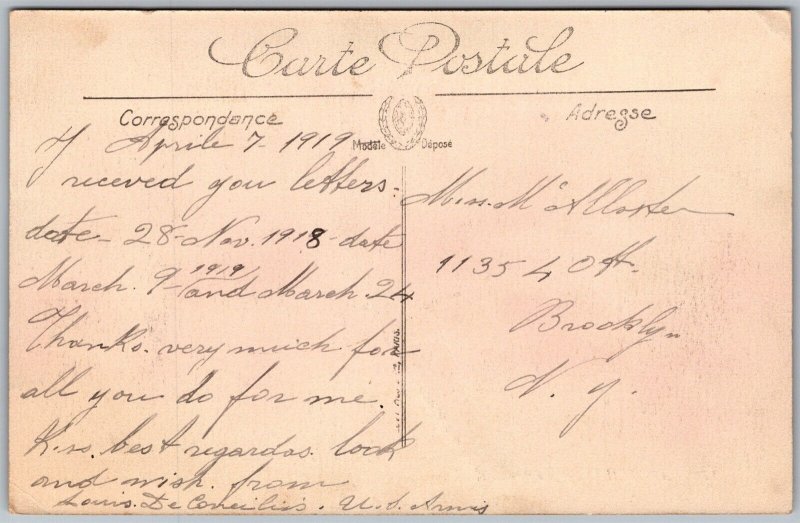 Carte Postale
Correspondance
Adresse
Modèle Déposé
Aprile 7 - 1919
receved you letters.
date - 28 - Nov. 1918 - date
March. 9 - 1919 and March. 24
Thanks. very much for
all you do for me.
Kiss. best regardos. look
and wish. from
Louis. De
U.S. Armis
Miss. Mc Alloster
1135
Brooklyn
N. y.